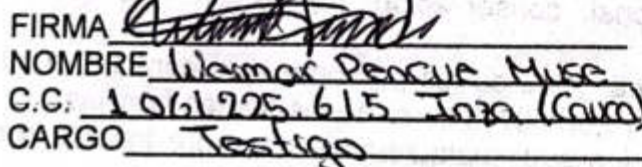 FIRMA
NOMBRE Wermar Pencue Muse
C.C. 1061225.615 Inza (Cauca)
CARGO Testigo